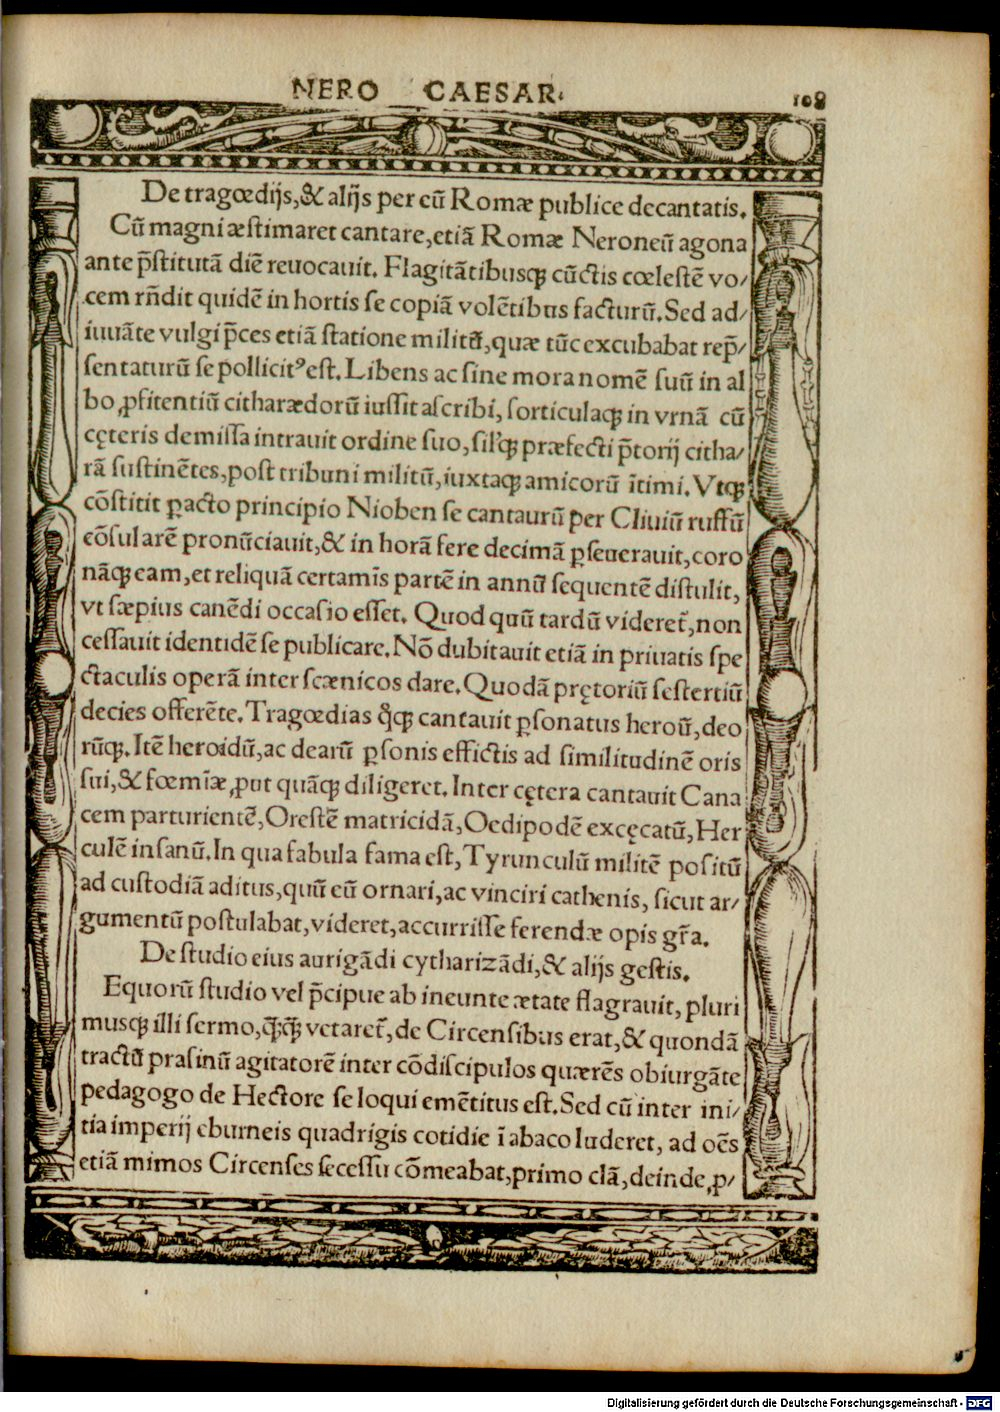 NERO CAESAR.
108
De tragœdijs,& alijs per eū Romæ publice decantatis.
Cū magni æstimaret cantare,etiā Romæ Neroneū agona
ante p̄stitutā diē reuocauit. Flagitātibusqꝫ cūctis cœlestē vo⸗
cem rn̄dit quidē in hortis se copiā volētibus facturū.Sed ad⸗
iuuāte vulgi p̄ces etiā statione militū,quæ tūc excubabat rep̄⸗
sentaturū se pollicitꝰ est.Libens ac sine mora nomē suū in al
bo ꝓfitentiū citharædorū iussit ascribi, sorticulaqꝫ in vrnā cū
cęteris demissa intrauit ordine suo, sil'qꝫ præfecti p̄torij citha⸗
rā sustinētes,post tribuni militū,iuxtaqꝫ amicorū ītimi. Vtqꝫ
cōstitit ꝑacto principio Nioben se cantaurū per Cliuiū ruffū
cōsularē pronūciauit,& in horā fere decimā ꝑseuerauit,coro
nāqꝫ eam,et reliquā certamīs partē in annū sequentē distulit,
vt sæpius canēdi occasio esset. Quod quū tardū videret̄,non
cessauit identidē se publicare.Nō dubitauit etiā in priuatis spe
ctaculis operā inter scænicos dare.Quodā prętoriū sestertiū
decies offerēte.Tragœdias q̊qꝫ cantauit ꝑsonatus heroū,deo
rūqꝫ.Itē heroidū,ac dearū ꝑsonis effictis ad similitudinē oris
sui,& fœmīæ,ꝓut quāqꝫ diligeret.Inter cętera cantauit Cana
cem parturientē,Orestē matricidā,Oedipodē excęcatū,Her
culē insanū.In qua fabula fama est,Tyrunculū militē positū
ad custodiā aditus,quū eū ornari,ac vinciri cathenis, sicut ar⸗
gumentū postulabat,videret,accurrisse ferendæ opis gr̄a.
De studio eius aurigādi cytharizādi,& alijs gestis.
Equorū studio vel p̄cipue ab ineunte ætate flagrauit, pluri
musqꝫ illi sermo,q̄q̄ꝫ vetaret̄,de Circensibus erat,& quondā
tractū prasinū agitatorē inter cōdiscipulos quærēs obiurgāte
pedagogo de Hectore se loqui emētitus est.Sed cū inter ini⸗
tia imperij eburneis quadrigis cotidie ī abaco luderet, ad oēs
etiā mimos Circenses secessu cōmeabat,primo clā,deinde ꝓ⸗
Digitalisierung gefördert durch die Deutsche Forschungsgemeinschaft - DFG